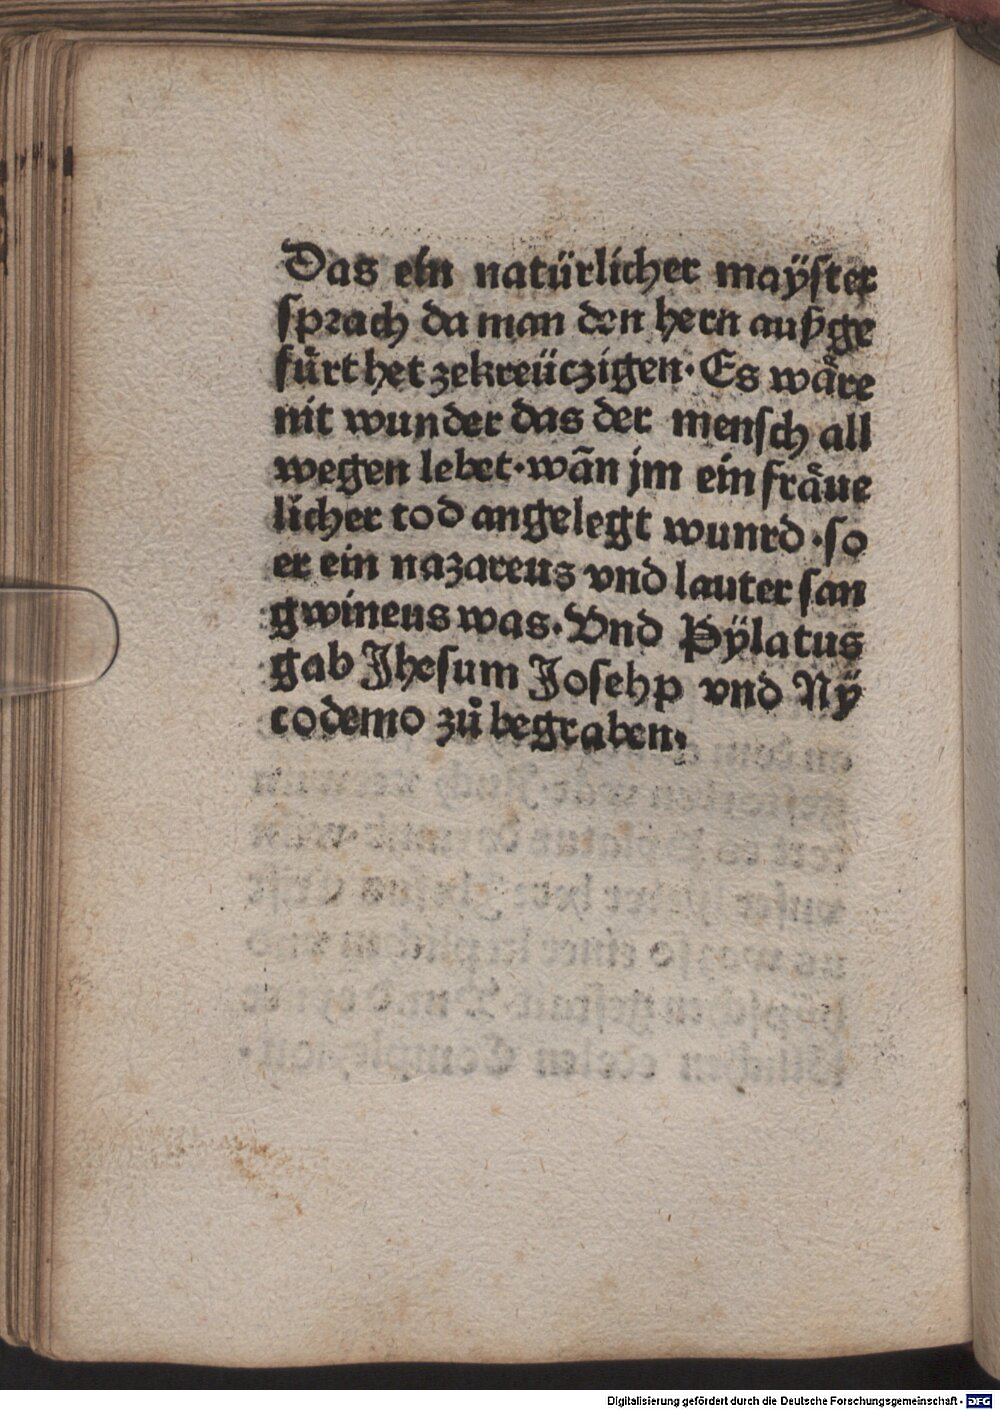 Das ein natürlicher maÿster
ſprach da man den hern außge
fürt het zekreüczigen. Es wåre
nit wunder das der menſch all
wegen lebet. wān jm ein fråue
licher tod angelegt wunrd. ſo
er ein nazareus vnd lauter ſan
gwineus was. Vnd Pÿlatus
gab Jheſum Joſehp vnd Nÿ
codemo zů begraben.
Digitalisierung gefördert durch die Deutsche Forschungsgemeinschaft - DFG